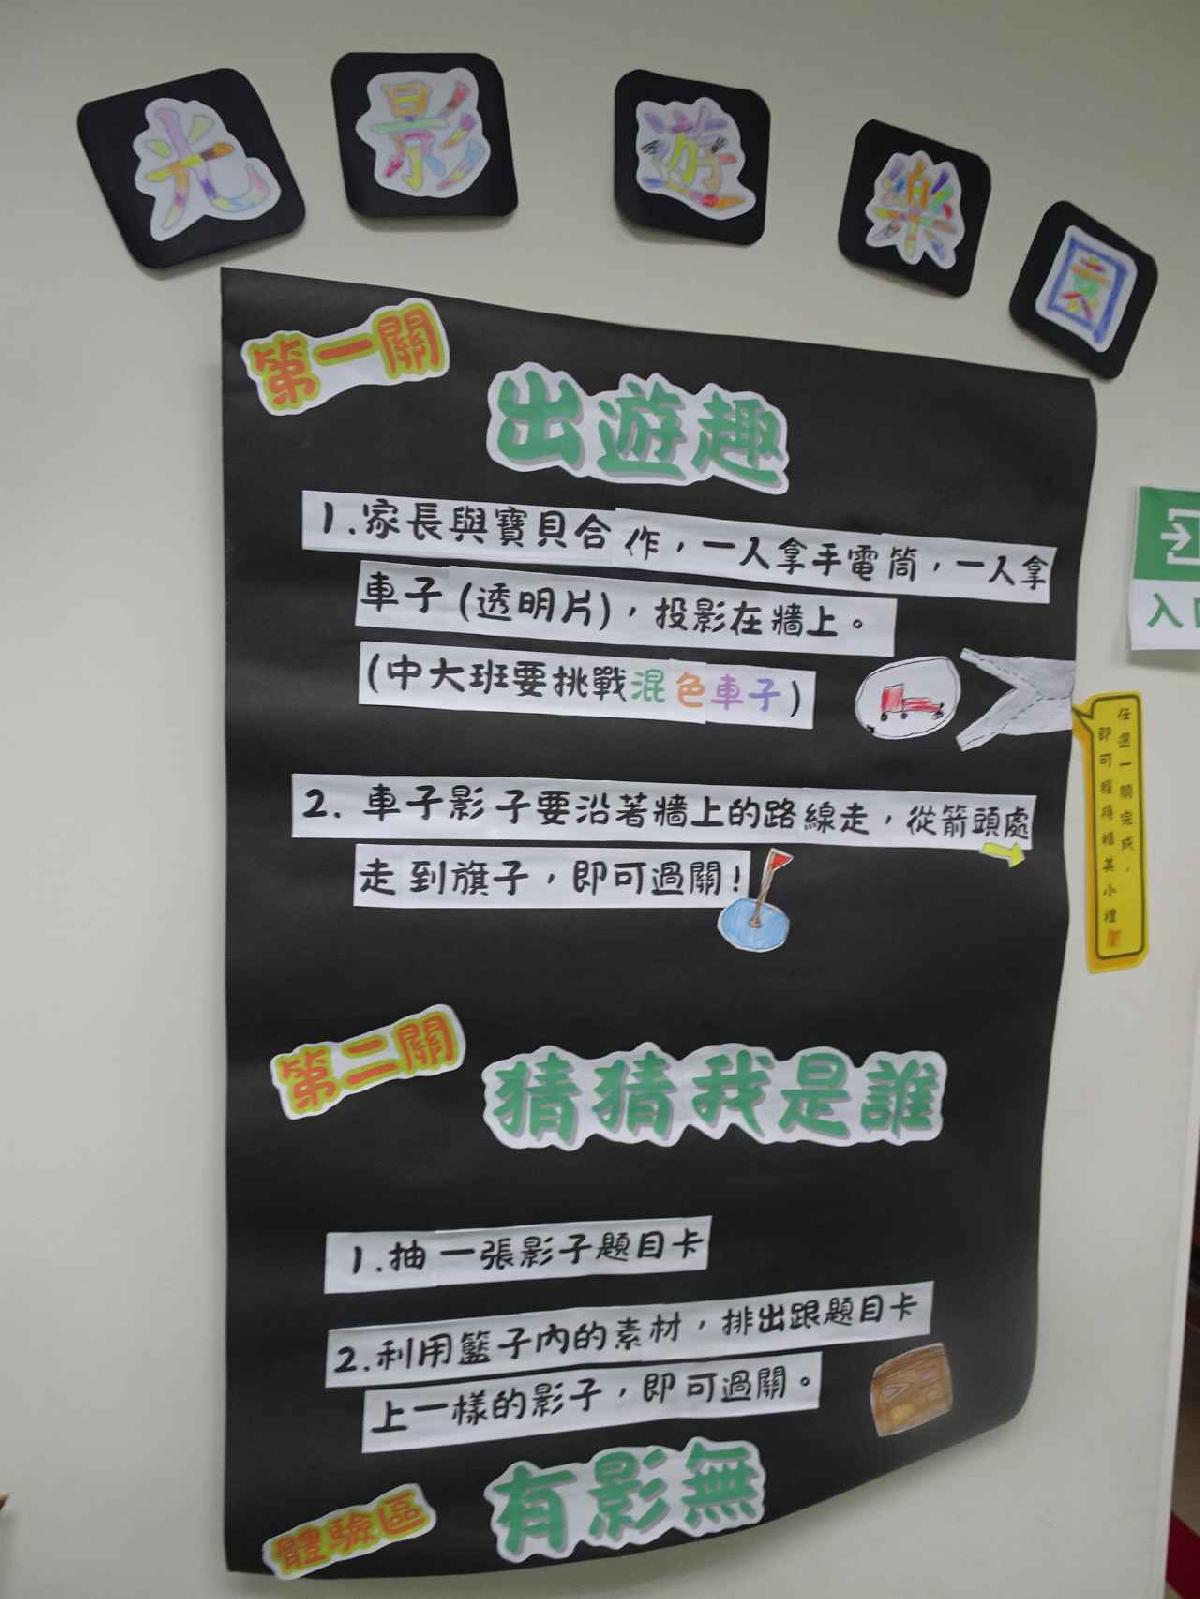 光影遊樂園
第一關
出遊趣
1.家長與寶貝合作，一人拿手電筒，一人拿
車子(透明片)，投影在牆上。
(中大班要挑戰混色車子)
2.車子影子要沿著牆上的路線走，從箭頭處
走到旗子，即可過關!
第二關
猜猜我是誰
1.抽一張影子題目卡
2.利用籃子內的素材，排出跟題目卡
上一樣的影子，即可過關。
體驗區
有影無
入
任選一關完成，
即可獲得精美小禮